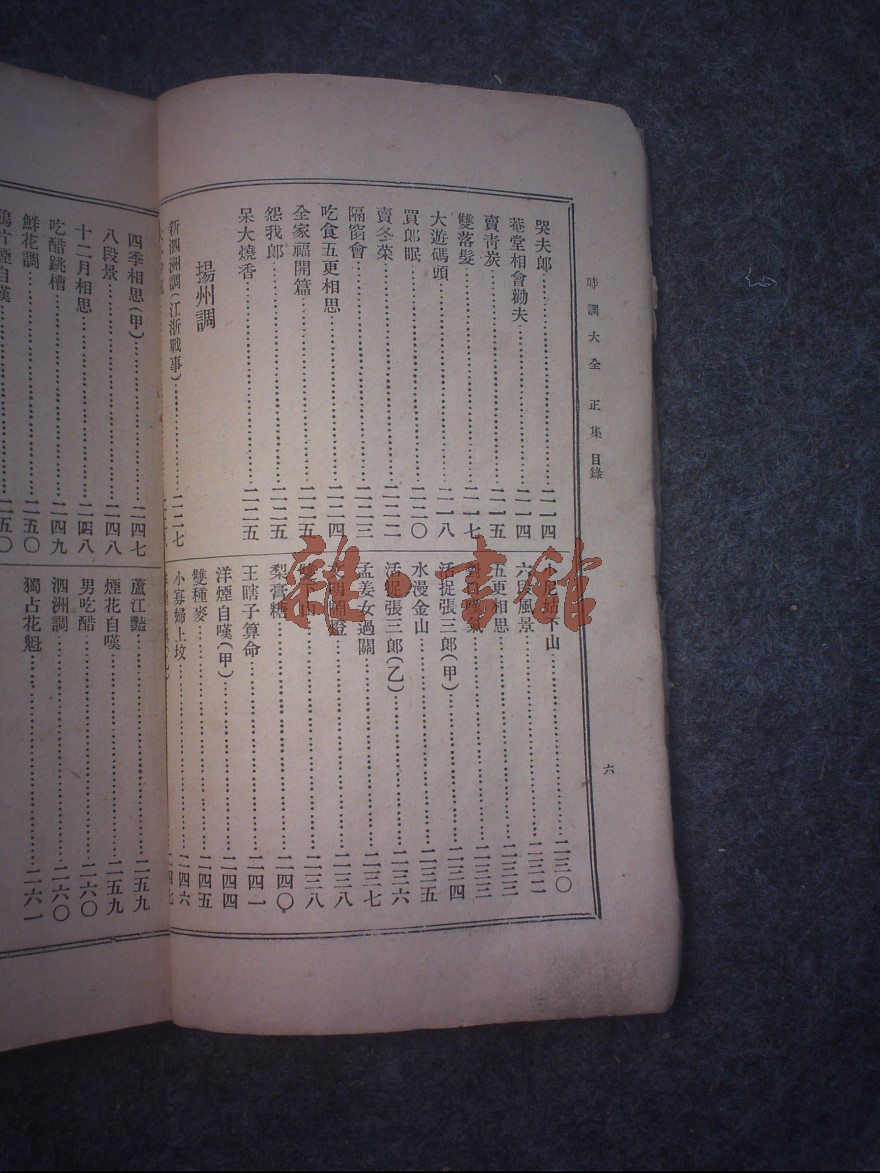 時調大全 正集 目錄
六
哭夫郎 二一四
菴堂相會勸夫 二一四
賣青炭 二一五
雙落髮 二一七
大遊碼頭 二一八
買郎眠 二二〇
賣冬菜 二二二
隔窗會 二二三
吃食五更相思 二二四
全家福開篇 二二五
怨我郎 二二五
呆大燒香 二二五
揚州調
新泗洲調(江浙戰事) 二二七
下山 二三〇
六段風景 二三二
五更相思 二三三
二三三
活捉張三郎(甲) 二三四
水漫金山 二三五
活捉張三郎(乙) 二三六
孟姜女過關 二三七
燈 二三八
山 二三八
梨膏糖 二四〇
王瞎子算命 二四一
洋煙自嘆(甲) 二四四
雙種麥 二四五
小寡婦上坟 二四六
四季相思(甲) 二四七
八段景 二四八
十二月相思 二四八
吃醋跳槽 二四九
鮮花調 二五〇
鴉片煙自嘆 二五〇
蘆江豔 二五九
煙花自嘆 二五九
男吃醋 二六〇
泗洲調 二六〇
獨占花魁 二六一
雜·書館